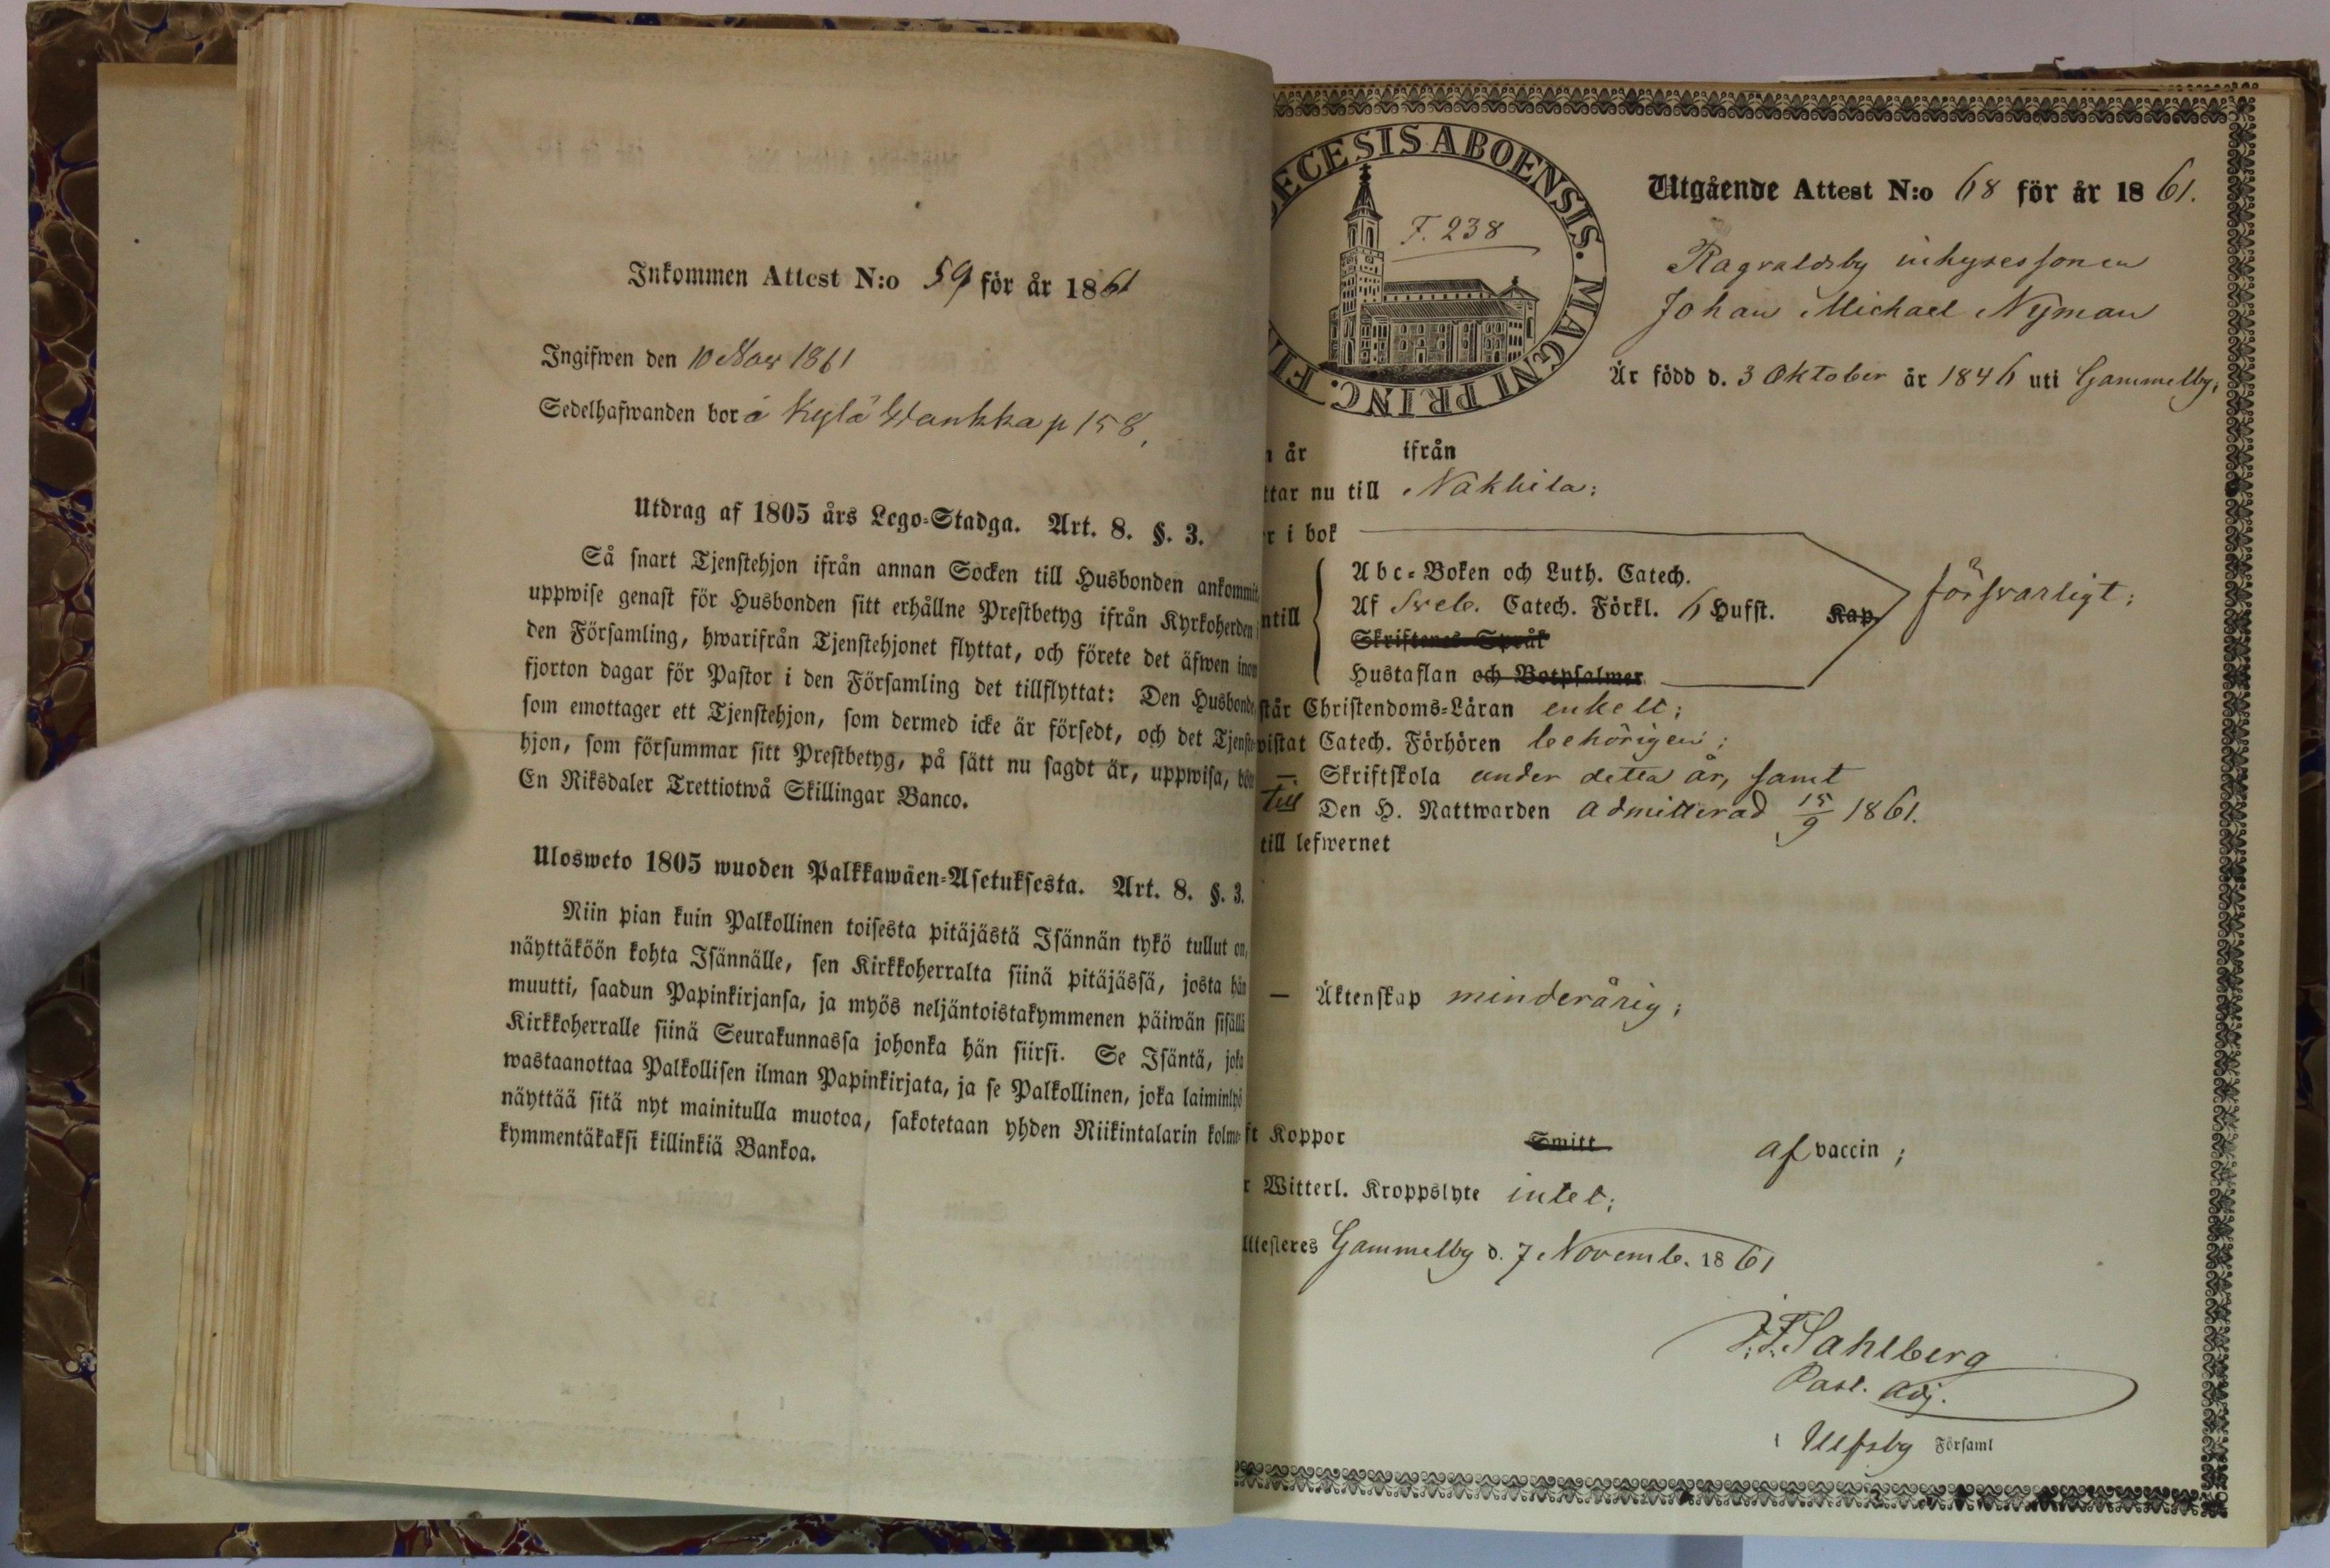 Inkommen Attest N:o 59 för år 1861
Ingifwen den 10 Nov 1861
Sedelhafwanden bor å Kylä Wankka p 158,
Utdrag af 1805 års Lego-Stadga. Art. 8. §. 3.
Så snart Tjenstehjon ifrån annan Socken till Husbonden ankommit,
uppwise genast för Husbonden sitt erhållne Prestbetyg ifrån Kyrkoherden i
den Församling, hwarifrån Tjenstehjonet flyttat, och förete det äfwen inom
fjorton dagar för Pastor i den Församling det tillflyttat: Den Husbonde
som emottager ett Tjenstehjon, som dermed icke är försedt, och det Tjenste-
hjon, som försummar sitt Prestbetyg, på sätt nu sagdt är, uppwisa, böte
En Riksdaler Trettiotwå Skillingar Banco.
Ulosweto 1805 wuoden Palkkawäen-Asetuksesta. Art. 8. §. 3.
Niin pian kuin Palkollinen toisesta pitäjästä Isännän tykö tullut on,
näyttäköön kohta Isännälle, sen Kirkkoherralta siinä pitäjässä, josta hän
muutti, saadun Papinkirjansa, ja myös neljäntoistakymmenen päiwän sisällä
Kirkkoherralle siinä Seurakunnassa johonka hän siirsi. Se Isäntä, joka
wastaanottaa Palkollisen ilman Papinkirjata, ja se Palkollinen, joka laiminlyö
näyttää sitä nyt mainitulla muotoa, sakotetaan yhden Riikintalarin kolme-
kymmentäkaksi killinkiä Bankoa.
ECESIS ABOENSIS. MAGNI PRINC. FI
F. 238
Utgående Attest N:o 68 för år 1861.
Ragvaldsby inhysessonen
Johan Michael Nyman
Är född d. 3 Oktober år 1846 uti Gammelby;
år ifrån
ttar nu till Nakkila;
r i bok
Abc-Boken och Luth. Catech.
ntill Af Sveb. Catech. Förkl. 6 Hufst. Kap. försvarligt;
Skriftenes Språk
Hustaflan och Botpsalmer
står Christendoms-Läran enkelt;
vistat Catech. Förhören behörigen;
— Skriftskola under detta år, samt
till Den H. Nattwarden admitterad 15/9 1861.
till lefwernet
— Äktenskap minderårig;
ft Koppor Smitt af vaccin;
r Witterl. Kroppslyte intet;
ttesteres Gammelby d. 7 Novemb. 1861
J. F. Sahlberg
Past. adj.
i Ulfsby Församl